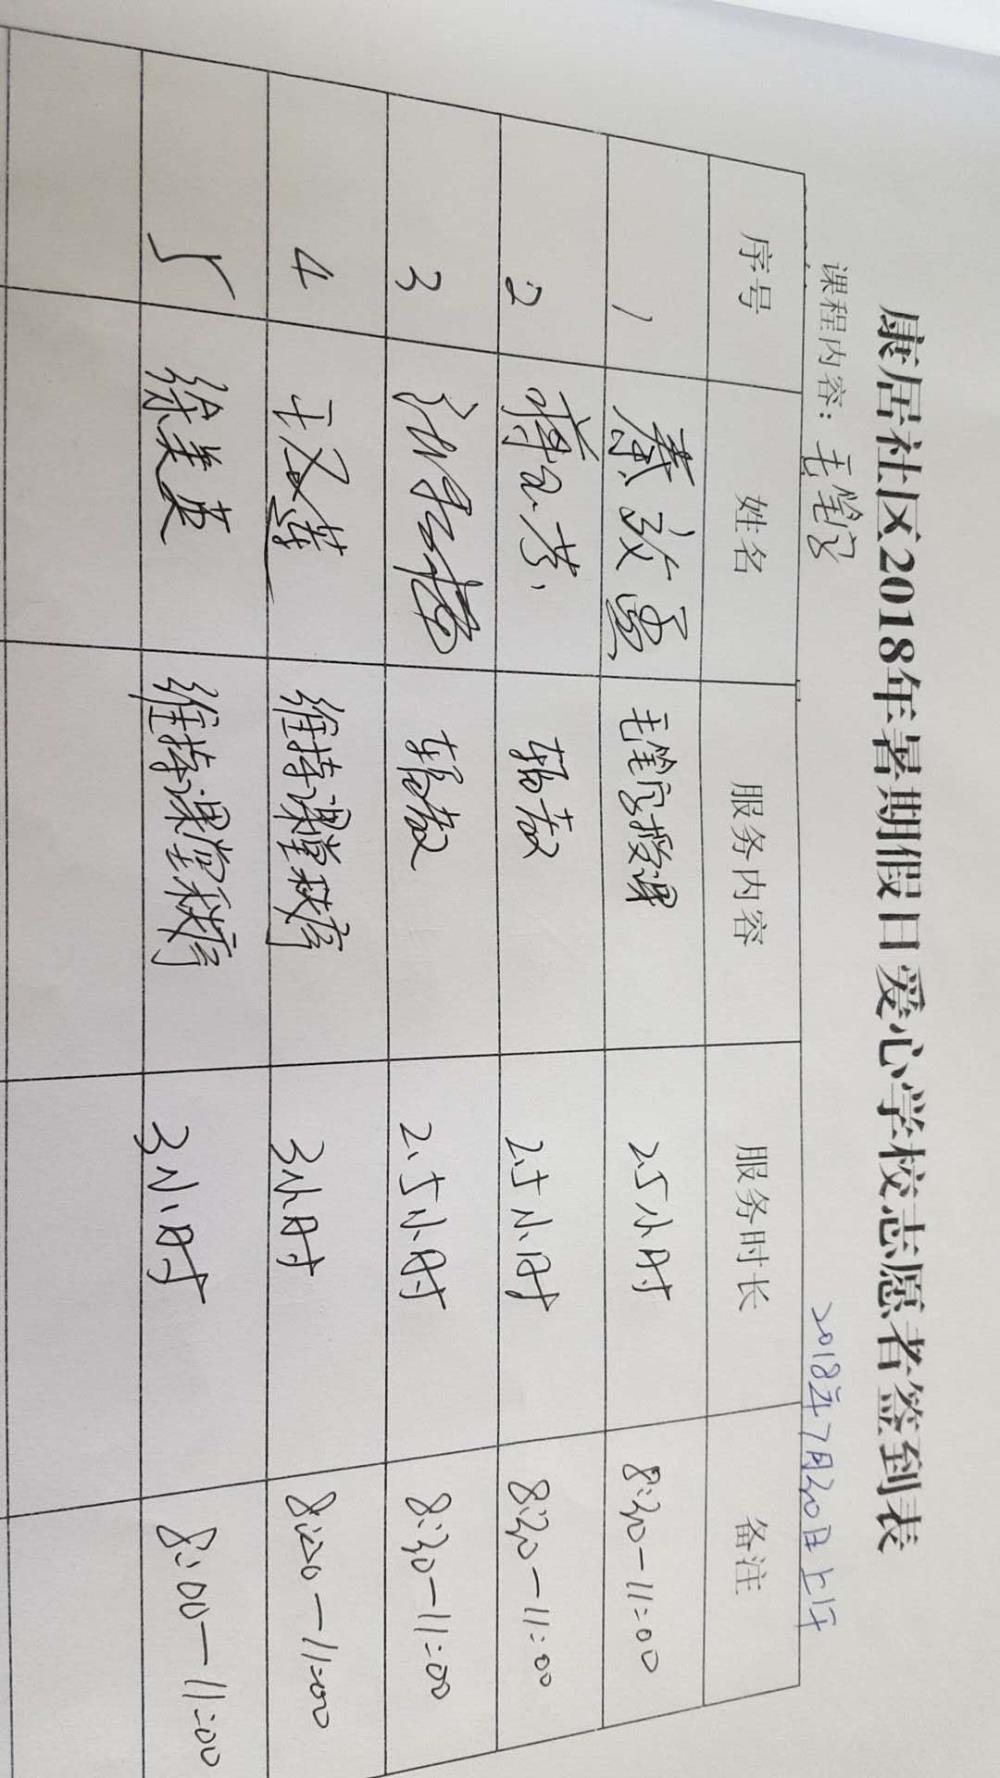 康居社区2018年暑期假日爱心学校志愿者签到表
课程内容：毛笔字 2018年7月30日上午
序号 姓名 服务内容 服务时长 备注
1 秦 毛笔字授课 2.5小时 8:30-11:00
2 蒋 辅教 2.5小时 8:30-11:00
3 辅教 2.5小时 8:30-11:00
4 王汉莲 维持课堂秩序 3小时 8:00-11:00
5 徐美英 维持课堂秩序 3小时 8:00-11:00